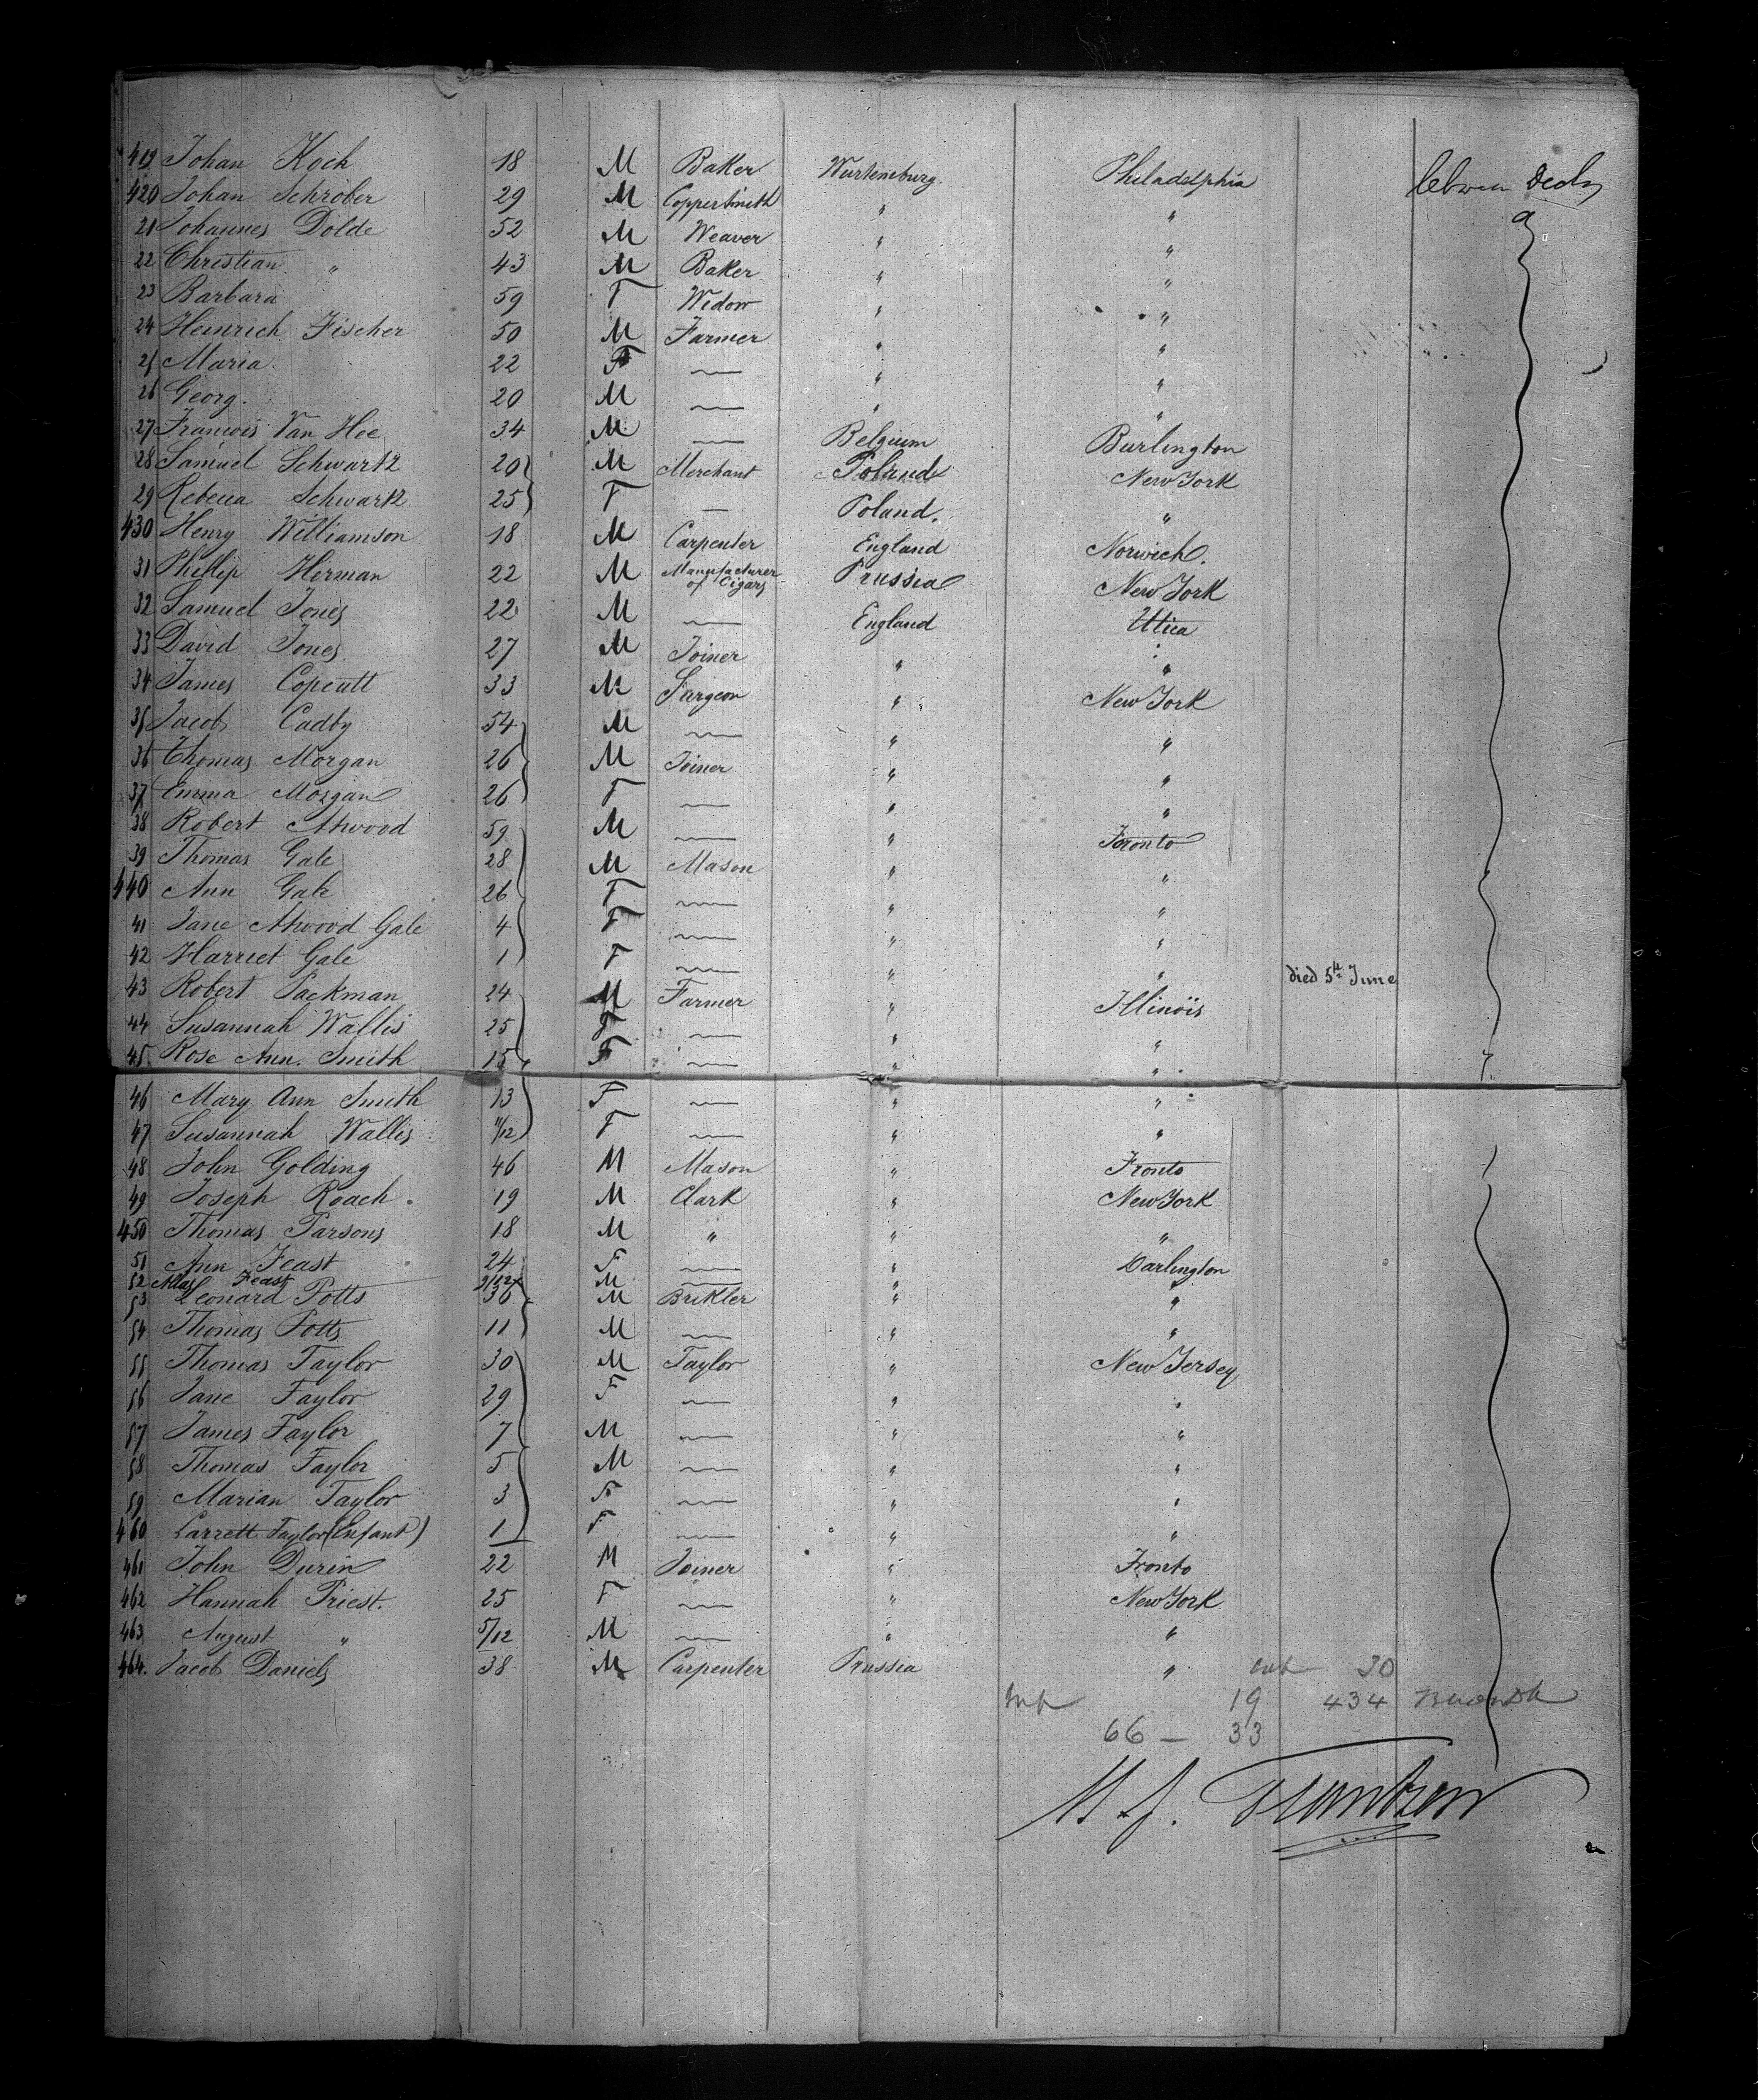 419 Johan Koch 18 M Baker Wurtemburg. Philadelphia
420 Johan Schrober 29 M Coppersmith " "
21 Johannes Dolde 52 M Weaver " "
22 Christian " 43 M Baker " "
23 Barbara 59 F Widow " "
24 Heinrich Fischer 50 M Farmer " "
25 Maria. 22 F — " "
26 Georg. 20 M — " "
27 Francois Van Hee 34 M — Belgium Burlington
28 Samuel Schwartz 20 M Merchant Poland New York
29 Rebecca Schwartz 25 F — Poland. "
430 Henry Williamson 18 M Carpenter England Norwich.
31 Phillip Hirman 22 M Manufacturer of Cigars Prussia New York
32 Samuel Jones 22 M — England Utica
33 David Jones 27 M Joiner " "
34 James Copcutt 33 M Surgeon " New York
35 Jacob Cadby 54 M — " "
36 Thomas Morgan 26 M Joiner " "
37 Emma Morgan 26 F — " "
38 Robert Atwood 59 M — " Toronto
39 Thomas Gale 28 M Mason " "
440 Ann Gale 26 F — " "
41 Jane Atwood Gale 4 F — " "
42 Harriet Gale 1 F — " " died 5th June
43 Robert Packman 24 M Farmer " Illinöis
44 Susannah Wallis 25 F — " "
45. Rose Ann. Smith 15 F — " "
46 Mary Ann Smith 13 F — " "
47 Susannah Wallis 11/12 F — " "
48 John Golding 46 M Mason " Tronto
49 Joseph Roach. 19 M Clark " New York
450 Thomas Parsons 18 M " " "
51 Ann Feast 24 F — " Darlington
52 Feast 9/12 M — " "
53 Leonard Potts 36 M Brikler " "
54 Thomas Potts 11 M — " "
55 Thomas Taylor 30 M Taylor " New Jersey
56 Jane Taylor 29 F — " "
57 James Taylor 7 M — " "
58 Thomas Taylor 5 M — " "
59 Marian Taylor 3 F — " "
460 Larrett Taylor (Enfant) 1 F — " "
461 John Durin 22 M Joiner " Tronto
462 Hannah Priest. 25 F — " New York
463 August " 5/12 M — " "
464. Jacob Daniels 38 M Carpenter Prussia "
30
19 434
66 — 33